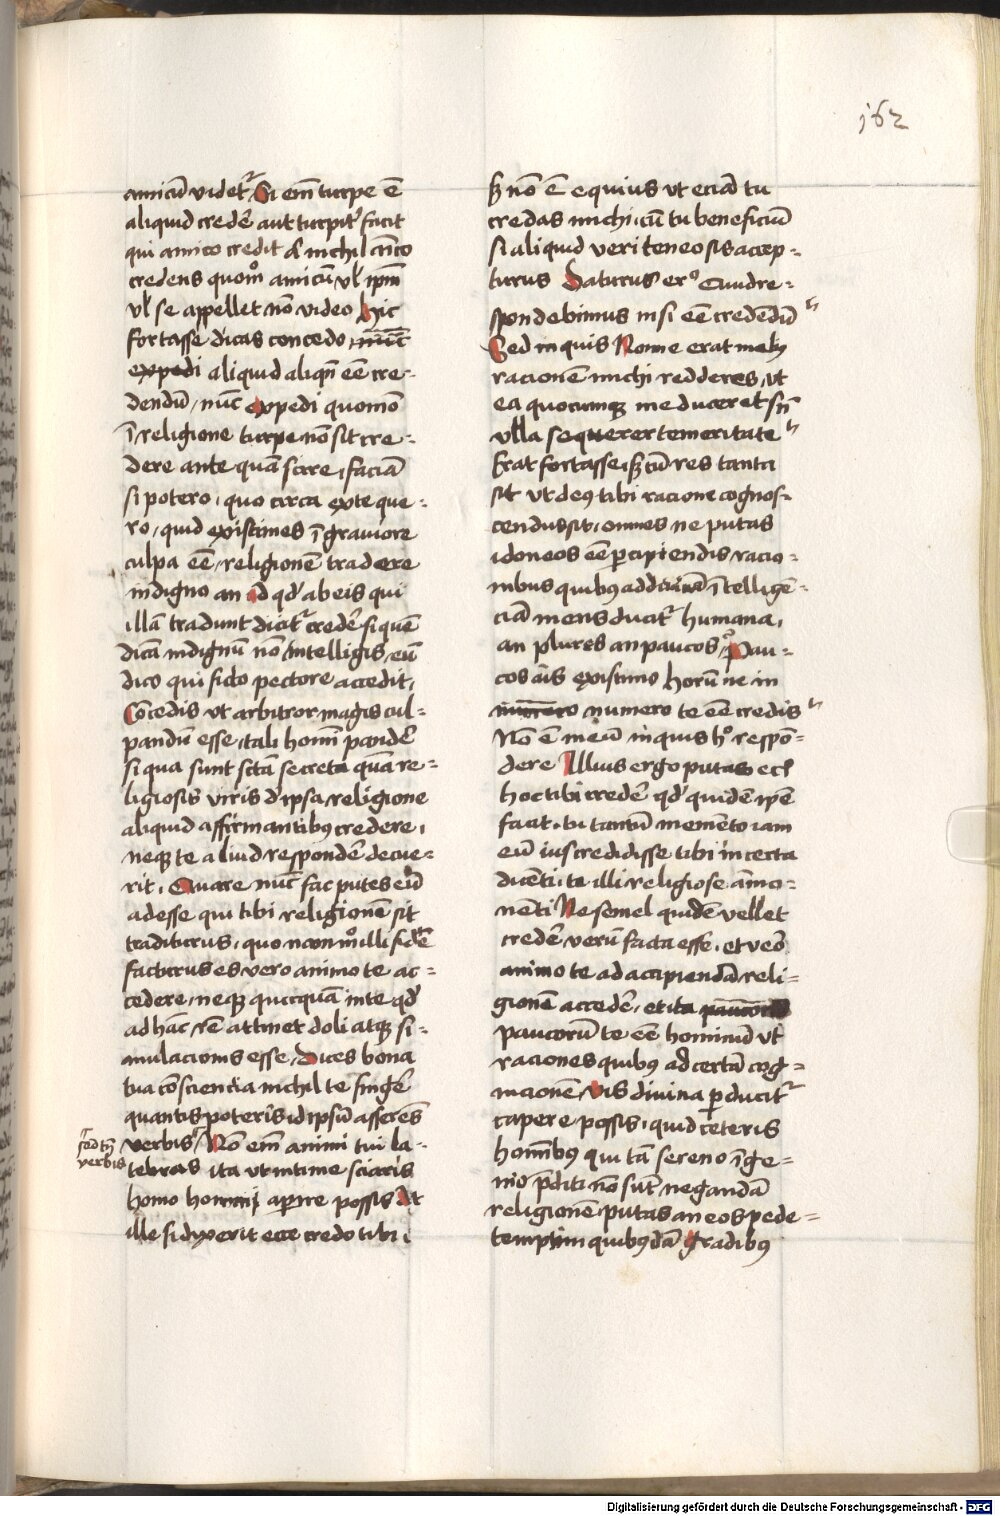 162
amicũ videt᷑ Si em̃ turpe ẽ
aliquid creder̃ aut turpit᷑ facit
qui amico credit
credens quom̊ amicũ vl̃ ip̃m
vl̃ se appellet non video hic
fortasse dicas concedo nũc̃
expedi aliquid aliqñ eẽ cre-
dendũ nũc expedi quomõ
ĩ religione turpe non sit cre-
dere ante quã scire faciã
si potero quo circa ex te que-
ro quid existimes ĩ graviore
culpa eẽ religionẽ tradere
indigno an id qd̃ ab eis qui
illã tradunt dicit᷑ creder̃ si quẽ
dicã indignũ nõ intelligis eũ
dico qui ficto pectore accedit
Cõcedis vt arbitror magis cul-
pandũ esse tali homĩ pander̃
si qua sunt sc̃ta secreta quã re-
ligiosis viris d̃ ipsa religione
aliquid affirmantibꝰ credere
neqꝫ te aliud responder̃ decue-
rit Quare nũc fac putes eũ
adesse qui tibi religionẽ sit
traditurus quo nam m̊ illi fidẽ
facturus es vero animo te ac-
cedere neqꝫ quicquã in te qd̃
ad hãc rẽ attinet doli atqꝫ si-
mulacionis esse Dices bona
tua cõsciencia nichil te finger̃
quantis poteris id ipsũ asserẽs
sed tñ
verbis
verbis Nõ em̃ animi tui la-
tebras ita vt intime sciaris
homo homini aperire possis At
ille si dixerit ecce credo tibi
sꝫ nõ ẽ equius vt eciã tu
credas michi cũ tu beneficiũ
si aliquid veri teneo sis accep-
turus Daturus er᷒ Quid re-
spondebimus nisi eẽ credendũ
Sed inquis Nonne erat melꝰ
racionẽ michi redderes vt
ea quocumqꝫ me duceret sñ
vlla sequerer temeritate
Erat fortasse sꝫ cũ res tanta
sit vt deꝰ tibi racione cognos-
cendus sit omnes ne putas
idoneos eẽ percipiendis racio-
nibus quibꝰ ad diuinã ĩtelligẽ-
ciã mens ducit᷑ humana
an plures an paucos Pau-
cos ais existimo horũ ne in
numero numero te eẽ credis
Nõ ẽ meũ inquis h̊ respõ-
dere Illius ergo putas eci
hoc tibi creder̃ qd̃ quidẽ ip̃e
facit tu tantũ memẽto iam
eũ ius credidisse tibi incerta
dicẽti ta illi religiose ãmo-
nẽti Ne semel quidẽ vellet
creder̃ verũ facta esse et veõ
animo te ad accipiendã reli-
gionẽ acceder̃ et ita
paucorũ te eẽ hominũ vt
raciones quibꝰ ad certã cog-
nicionẽ vis divina perducit᷑
capere possis quid ceteris
hominibꝰ qui tã sereno ĩge-
nio p̃diti nõ sũt negandã
religionẽ putas an eos pede-
temptim quibꝰdã gradibꝰ
Digitalisierung gefördert durch die Deutsche Forschungsgemeinschaft - DFG